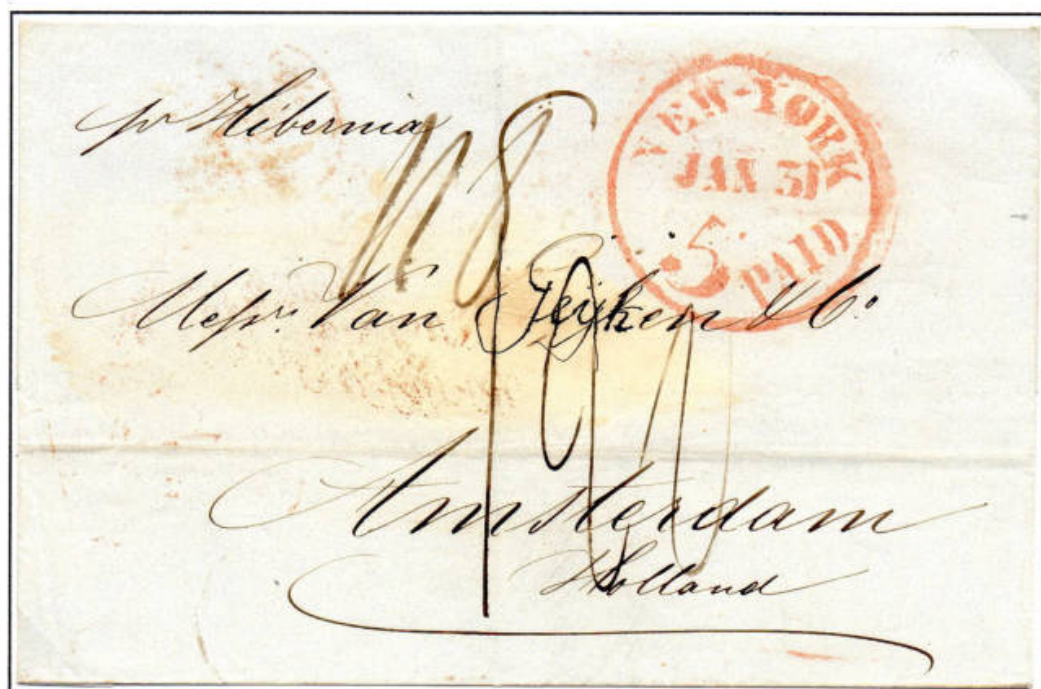 pr Hibernia
NEW-YORK
JAN 31
5
PAID
1/8
Messrs. Van & Co.
Amsterdam
Holland